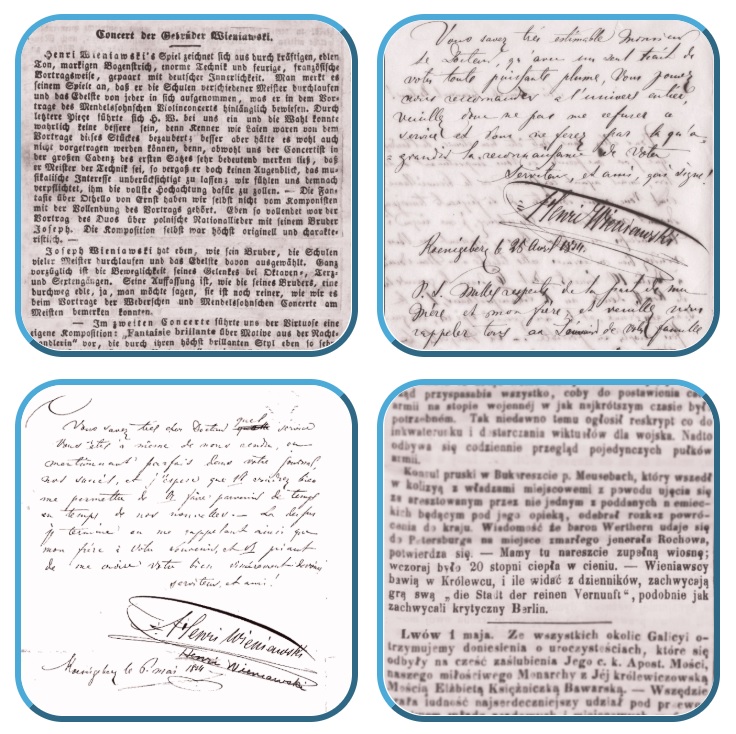 Concert der Gebrüder Wieniawski.
Henri Wieniawski's Spiel zeichnet sich aus durch kräftigen, edlen
Ton, markigen Bogenstrich, enorme Technik und feurige, französische
Vortragsweise, gepaart mit deutscher Innerlichkeit. Man merkt es
seinem Spiele an, daß er die Schulen verschiedener Meister durchlaufen
und das Edelste von jeder in sich aufgenommen, was er in dem Vor-
trage des Mendelssohnschen Violinconcerts hinlänglich bewiesen. Durch
letztere Piece führte sich H. W. bei uns ein und die Wahl konnte
wahrlich keine bessere sein, denn Kenner wie Laien waren von dem
Vortrage dieses Stückes bezaubert; besser aber hätte es wohl auch
nicht vorgetragen werden können, denn, obwohl uns der Concertist in
der großen Cadenz des ersten Satzes sehr bedeutend merken ließ, daß
er Meister der Technik sei, so vergaß er doch keinen Augenblick, das mu-
sikalische Interesse unberücksichtigt zu lassen; wir fühlen uns demnach
verpflichtet, ihm die vollste Hochachtung dafür zu zollen. — Die Fan-
tasie über Othello von Ernst haben wir selbst nicht vom Komponisten
mit der Vollendung des Vortrags gehört. Eben so vollendet war der
Vortrag des Duos über polnische Nationallieder mit seinem Bruder
Joseph. Die Komposition selbst war höchst originell und charakte-
ristisch. —
Joseph Wieniawski hat eben, wie sein Bruder, die Schulen
vieler Meister durchlaufen und das Edelste davon ausgewählt. Ganz
vorzüglich ist die Beweglichkeit seines Gelenkes bei Oktaven, Terz-
und Sextengängen. Seine Auffassung ist, wie die seines Bruders, eine
durchweg edle, ja, man möchte sagen, sie ist noch reiner, wie wir es
beim Vortrage der Weberschen und Mendelssohnschen Concerte am
Meisten bemerken konnten.
— Im zweiten Concerte führte uns der Virtuose eine
eigene Komposition: „Fantaisie brillante über Motive aus der Nacht-
wandlerin" vor, die durch ihren höchst brillanten Styl eben so sehr
Vous savez très estimable Monsieur
le Docteur, qu'avec un seul trait de
votre toute puissante plume, Vous pouvez
nous recommander à l'univers entier
veuillez donc ne pas me refuser ce
service et Vous ne ferez pas là qu'a-
grandir la reconnaissance de Votre
Serviteur, et ami, qui signe!
Henri Wieniawski
Koenigsberg le 25 Avril 1854.
P.S. Milles respects de la part de ma
mère et mon frère, et veuillez nous
rappeler tous au Souvenir de votre famille
Vous savez très cher Docteur quel service
Vous êtes à même de nous rendre, en
mentionnant parfois dans votre journal,
nos succès, et j'espère que Vs voudrez bien
me permettre de Vs faire parvenir de temps
en temps de nos nouvelles —
je termine en me rappelant ainsi que
mon frère à Votre souvenir, et Vs priant
de me croire Votre bien sincèrement dévoué
serviteur, et ami!
Henri Wieniawski
Henri Wieniawski
Koenigsberg le 6 mai 1854
rząd przyspasabia wszystko, coby do postawienia całej
armii na stopie wojennéj w jak najkrótszym czasie było
potrzebném. Tak niedawno temu ogłosił reskrypt co do
inkwaterunku i dostarczania wiktuałów dla wojska. Nadto
odbywa się codziennie przegląd pojedynczych pułków
armii.
Konsul pruski w Bukareszcie p. Meusebach, który wszedł
w kolizyą z władzami miejscowemi z powodu ujęcia się
za aresztowanym przez nie jednym z poddanych niemiec-
kich będącym pod jego opieką, odebrał rozkaz powró-
cenia do kraju. Wiadomość że baron Werthern udaje się
do Petersburga na miejsce zmarłego jenerała Rochowa,
potwierdza się. — Mamy tu nareszcie zupełną wiosnę;
wczoraj było 20 stopni ciepła w cieniu. — Wieniawscy
bawią w Królewcu, i ile widać z dzienników, zachwycają
grą swą „die Stadt der reinen Vernunft", podobnie jak
zachwycali krytyczny Berlin.
Lwów 1 maja. Ze wszystkich okolic Galicyi o-
trzymujemy doniesienia o uroczystościach, które się
odbyły na cześć zaślubienia Jego c. k. Apost. Mości,
naszego miłościwego Monarchy z Jéj królewiczowską
Mością Elżbietą Księżniczką Bawarską. — Wszędzie
brała ludność najserdeczniejszy udział